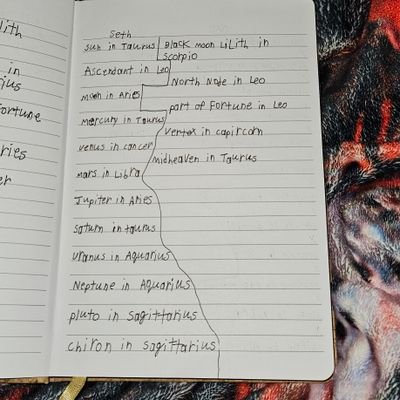 lith
in
ius
Fortune
ries
er
Seth
Sun in Taurus
Ascendant in Leo
Moon in Aries
Mercury in Taurus
Venus in cancer
mars in Libra
Jupiter in Aries
Saturn in taurus
Uranus in Aquarius
Neptune in Aquarius
pluto in Sagittarius
chiron in Sagittarius
Black moon LiLith in
Scorpio
North Node in Leo
part of Fortune in Leo
Vertex in capircorn
Midheaven in Taurus